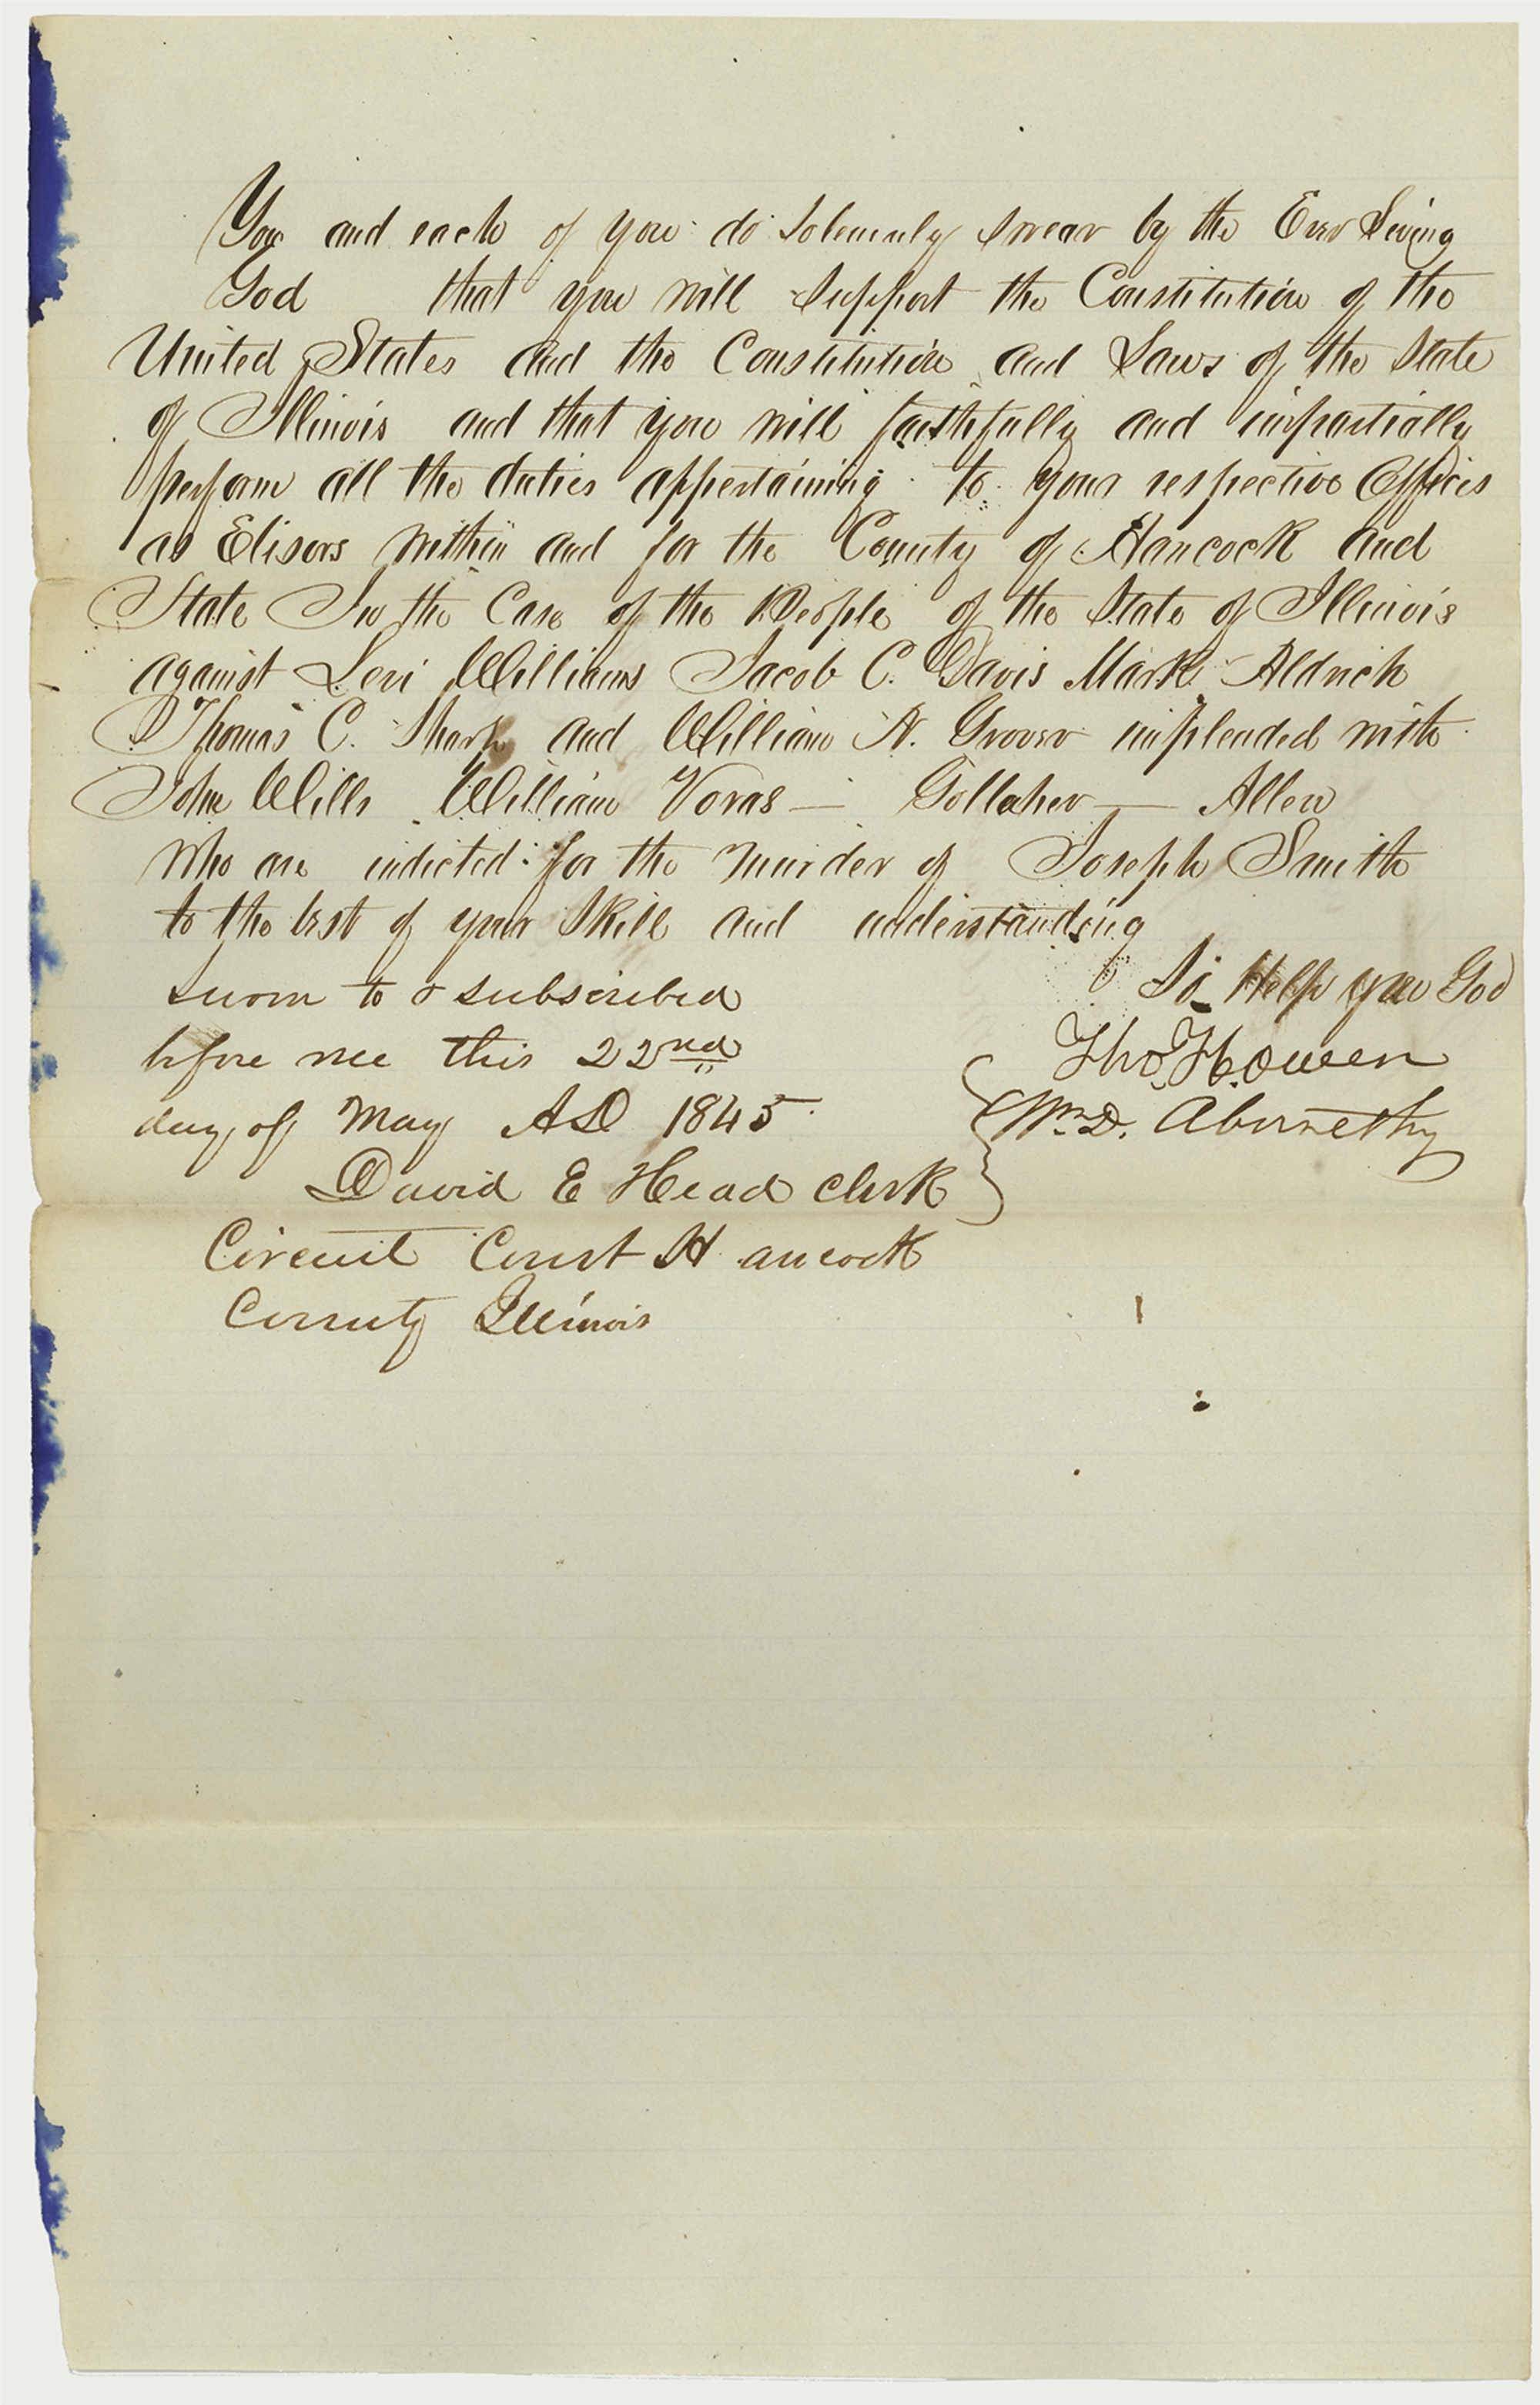 You and each of you do Solemnly Swear by the Ever Living
God that you will Support the Constitution of the
United States and the Constitution and Laws of the State
of Illinois and that you will faithfully and impartially
perform all the duties appertaining to your respective Offices
as Elisors within and for the County of Hancock and
State In the Case of the People of the State of Illinois
against Levi Williams Jacob C. Davis Mark Aldrich
Thomas C. Sharp and William N. Grover impleaded with
John Wills William Voras — Gollaher — Allen
who are indicted for the murder of Joseph Smith
to the best of your Skill and understanding
So Help you God
Sworn to & subscribed
before me this 22nd
day of May AD 1845
David E Head Clerk
Circuit Court Hancock
County Illinois
Tho. H. Owen
Wm. D. Abernethy